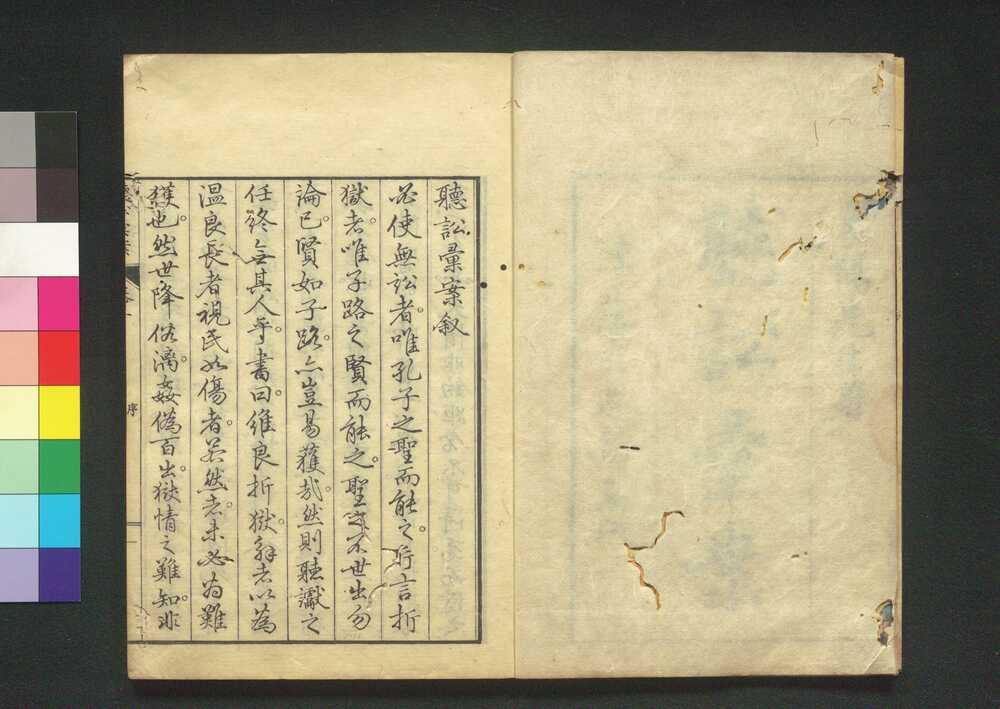 聽訟彙案叙
必使無訟者。唯孔子之聖而能之。所言折
獄者。唯子路之賢而能之。聖之不世出勿
論已。賢如子路。亦豈易獲哉。然則聽讞之
任終無其人乎。書曰。維良折獄。釋者以為
温良長者視民如傷者。若然者。未必為難
獲也。然世降俗漓。姦偽百出。獄情之難知。非
序